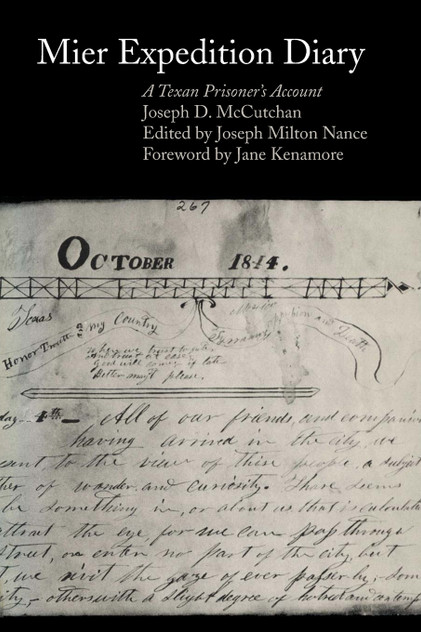 Mier Expedition Diary
A Texan Prisoner's Account
Joseph D. McCutchan
Edited by Joseph Milton Nance
Foreword by Jane Kenamore
267
October 1844.
Texas
Honor Truth & my Country
Tyranny
and Death
Better must please.
day 4th All of our friends, and companions
having arrived in the city, we
to the view of these people, a subject
of wonder and curiosity. There seems
be something in, or about us that is calculated
attract the eye, for we can pass through
street, or enter no part of the city, but
we rivit the gaze of ever passer by, som
ity, - others with a slight degree of hatred and contemp